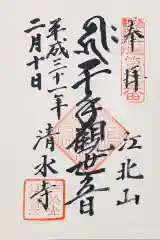 奉拝
江北山
千手觀世音
清水寺
平成三十一年
二月十日